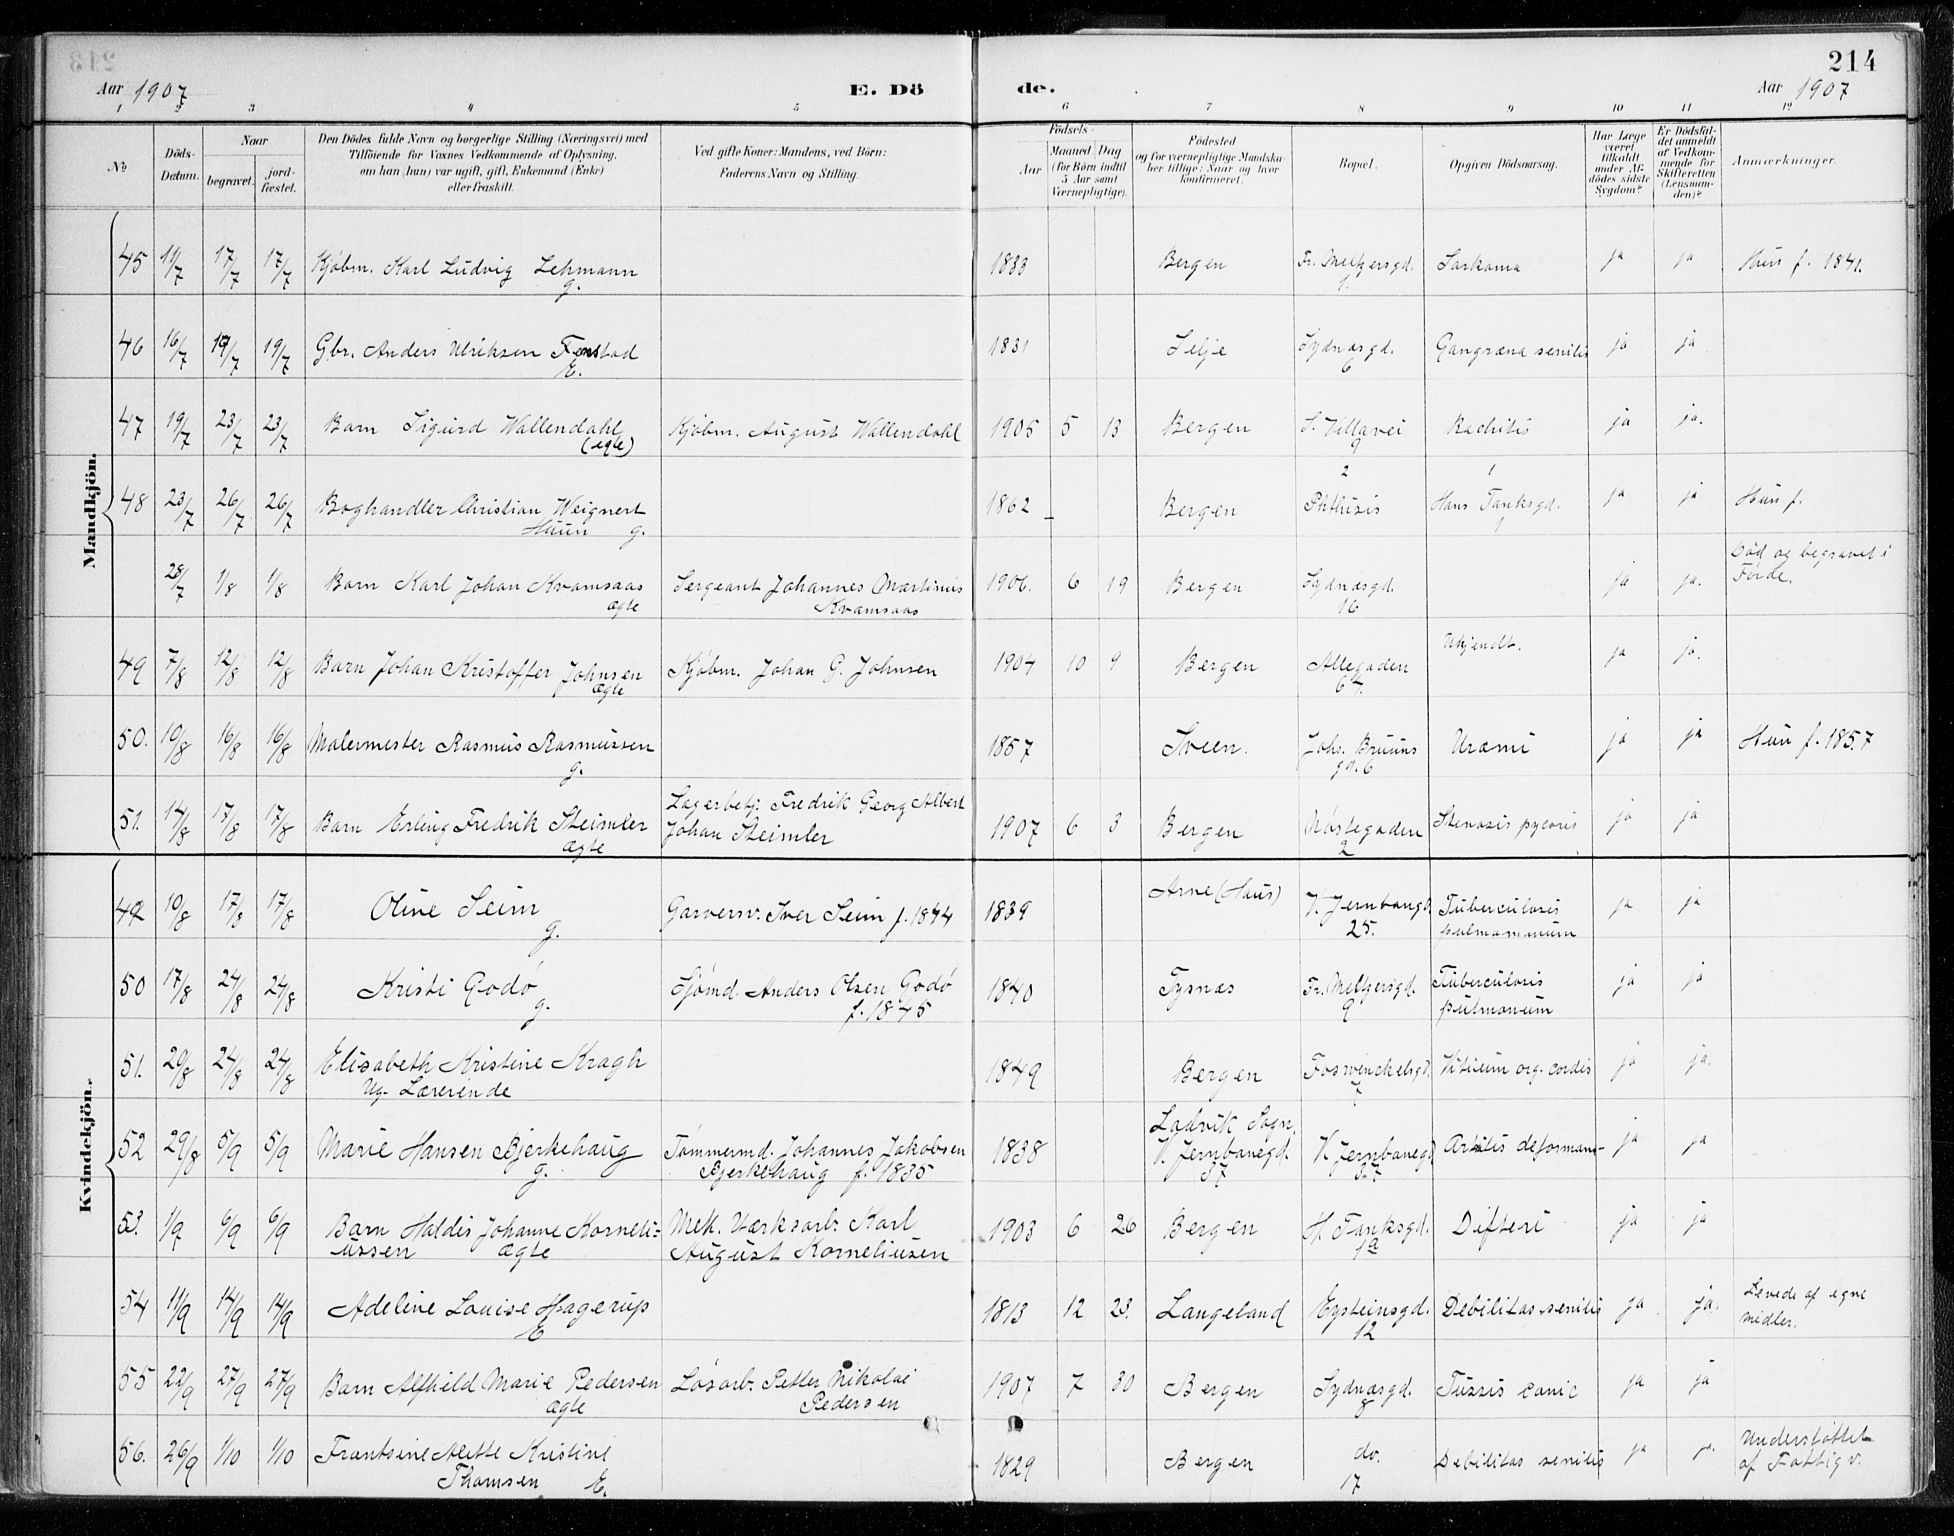 213
214
Aar 1907 E. Dö de. Aar 1907
1 2 3 4 5 6 7 8 9 10 11 12
No
Döds-Datum.
Naar
begravet.
jord-fæstet.
Den Dödes fulde Navn og borgerlige Stilling (Næringsvei) med
Tilföiende for Voxnes Vedkommende af Oplysning,
om han (hun) var ugift, gift, Enkemand (Enke)
eller fraskilt.
Ved gifte Koner: Mandens, ved Börn:
Faderens Navn og Stilling.
Födsels-
Aar
Maaned Dag
(for Börn indtil
5 Aar samt
Værnepligtige).
Födested
og for værnepligtige Mandska-
ber tillige: Naar og hvor
konfirmeret.
Bopæl.
Opgiven Dödsaarsag.
Har Læge
været
tilkaldt
under Af-
dödes sidste
Sygdom?
Er Dödsfal-
det anmeldt
af Vedkom-
mende for
Skifteretten
(Lensman-
den)?
Anmærkninger.
Mandkjön.
45 11/7 17/7 17/7 Kjøbm. Karl Ludvig Lehmann g. 1833 Bergen Fr. Meltzersgd. 1. Sarkoma ja ja Hun f. 1841.
46 16/7 19/7 19/7 Gbr. Anders Ulriksen Fonstad E. 1831 Selje Sydnæsgd. 6 Gangræna senilis ja ja
47 19/7 23/7 23/7 Barn Sigurd Wallendahl (egte) Kjøbm. August Wallendahl 1905 5 13 Bergen S. Villavei 9 Rachitis ja ja.
48 23/7 26/7 26/7 Boghandler Christian Weignert Huun g. 1862 Bergen 2 Phthisis 1 Hans Tanksgd. 9 ja ja Hun f.
28/7 1/8 1/8 Barn Karl Johan Kvamsaas ægte Sergeant Johannes Martinius Kvamsaas 1906. 6 19 Bergen Sydnæsgd. 16 ja ja. Död og begravet i Førde.
49 7/8 12/8 12/8 Barn Johan Kristoffer Johnsen ægte Kjøbm. Johan G. Johnsen 1904 10 9 Bergen Allegaden 67. Ukjendt. ja ja.
50. 10/8 16/8 16/8 Malermester Rasmus Rasmussen g. 1857 Sveen. Johs. Bruuns gd. 6 Uræmi ja ja Hun f. 1857
51. 14/8 17/8 17/8 Barn Erling Fredrik Steimler ægte Lagerbetj. Fredrik Georg Albert Johan Steimler 1907 6 3 Bergen Nøstegaden 2 Stenosis pyloris ja ja
Kvindekjön.
49 10/8 17/8 17/8 Oline Seim g. Garversv. Iver Seim f. 1844 1839 Arne (Haus) V. Jernbangd. 25. Tuberculosis pulmonuum ja ja
50 17/8 24/8 24/8 Kristi Godø g. Sjømd. Anders Olsen Godø f. 1845 1840 Tysnæs Fr. Meltzersgd. 9 Tuberculosis pulmonuum ja ja
51. 20/8 24/8 24/8 Elisabeth Kristine Kragh Ug. Lærerinde 1849 Bergen Fosvinckelsgd. 7 Vitium org. cordis ja ja.
52 29/8 5/9 5/9 Marie Hansen Bjerkehaug g. Tømmermd. Johannes Jakobsen Bjerkehaug f. 1835 1838 Ladvik Sogn. V. Jernbanegd. 37 V. Jernbanegd. 37 Artritis deformans ja ja
53. 1/9 6/9 6/9 Barn Haldis Johanne Korneli-ussen ægte Mek. Værksarb. Karl August Korneliusen 1903 6 26 Bergen H. Tanksgd. 1a Difteri ja ja
54 11/9 14/9 14/9 Adeline Louise Hagerup E 1813 12 23. Langeland Eysteinsgd. 12 Debilitas senilis ja ja. Levede af egne midler.
55 22/9 27/9 27/9 Barn Alfhild Marie Pedersen ægte Løsarb. Petter Nikolai Pedersen 1907 7 30 Bergen Sydnæsgd. 8 Tussis conic ja ja
56. 26/9 1/10 1/10 Frantsine Alette Kristine Thomsen E. 1829 Bergen do. 17 Debilitas senilis ja ja. Understøttet af Fattigv.